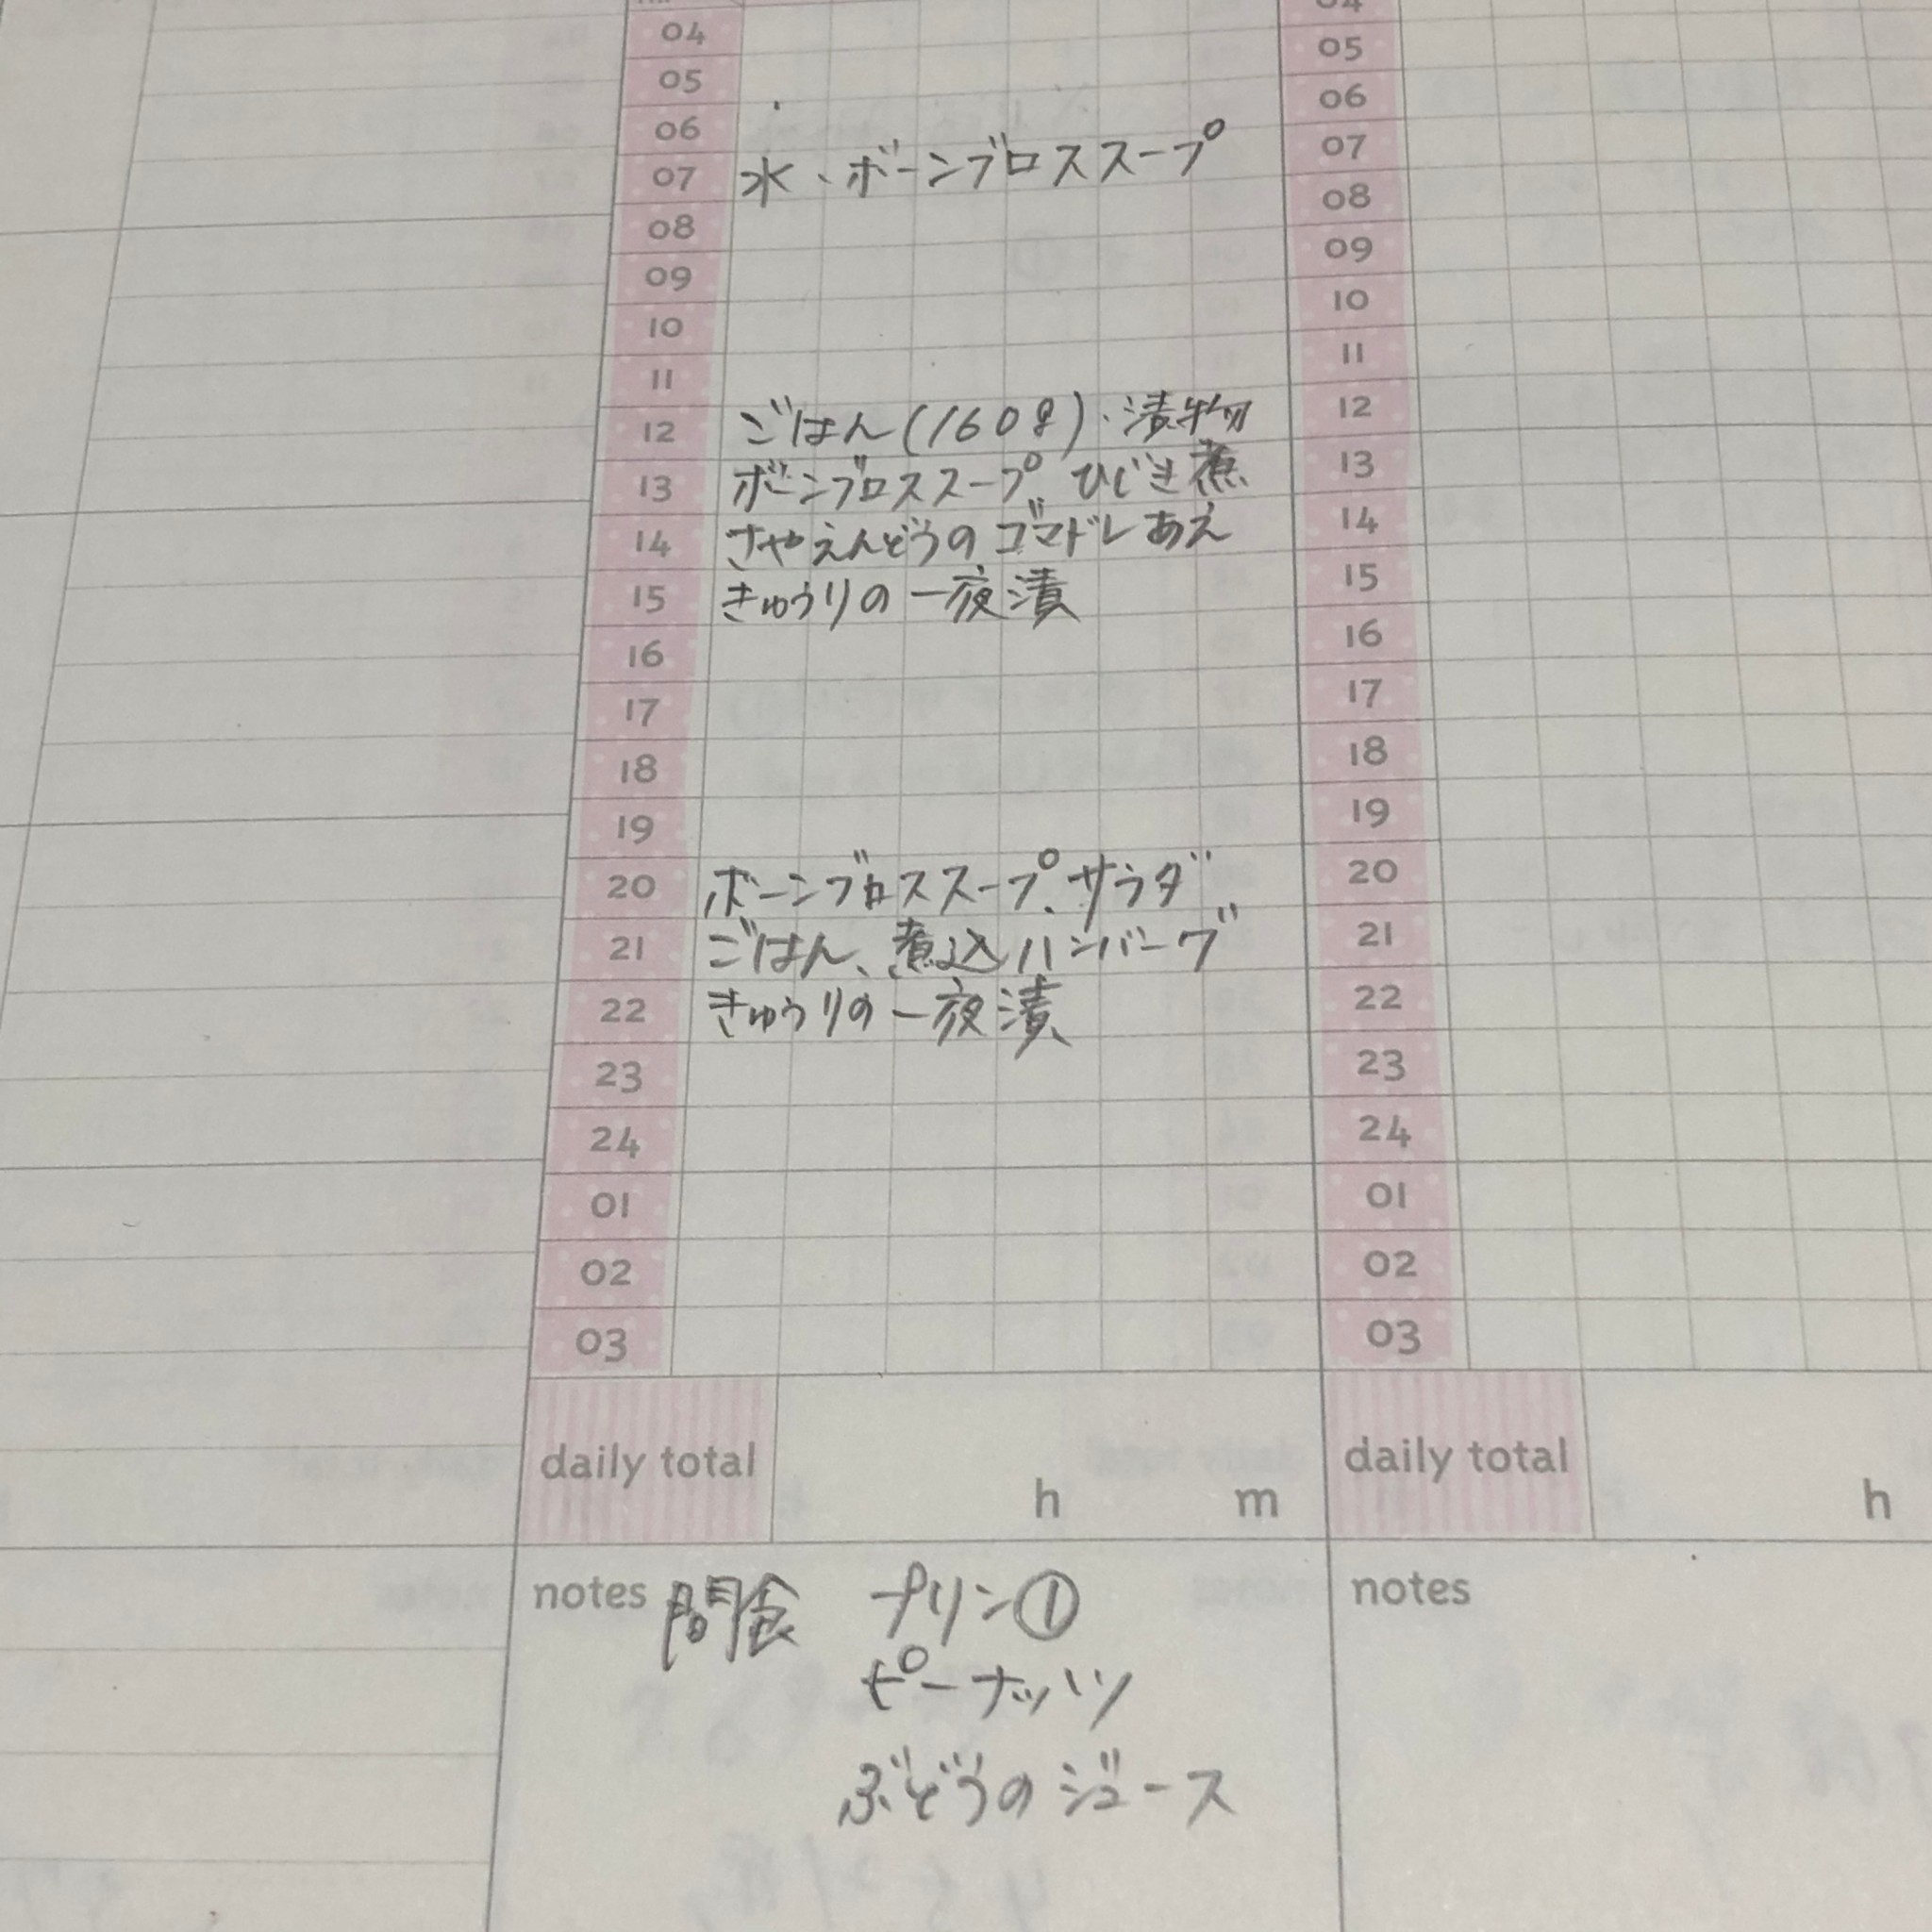 04
05
06
07 水、ボーンブロススープ
08
09
10
11
12 ごはん(160g)、漬物
13 ボーンブロススープ ひじき煮
14 さやえんどうのゴマドレあえ
15 きゅうりの一夜漬
16
17
18
19
20 ボーンブロススープ、サラダ
21 ごはん、煮込ハンバーグ
22 きゅうりの一夜漬
23
24
01
02
03
daily total h m
notes 間食 プリン①
ピーナッツ
ぶどうのジュース
04
05
06
07
08
09
10
11
12
13
14
15
16
17
18
19
20
21
22
23
24
01
02
03
daily total h
notes